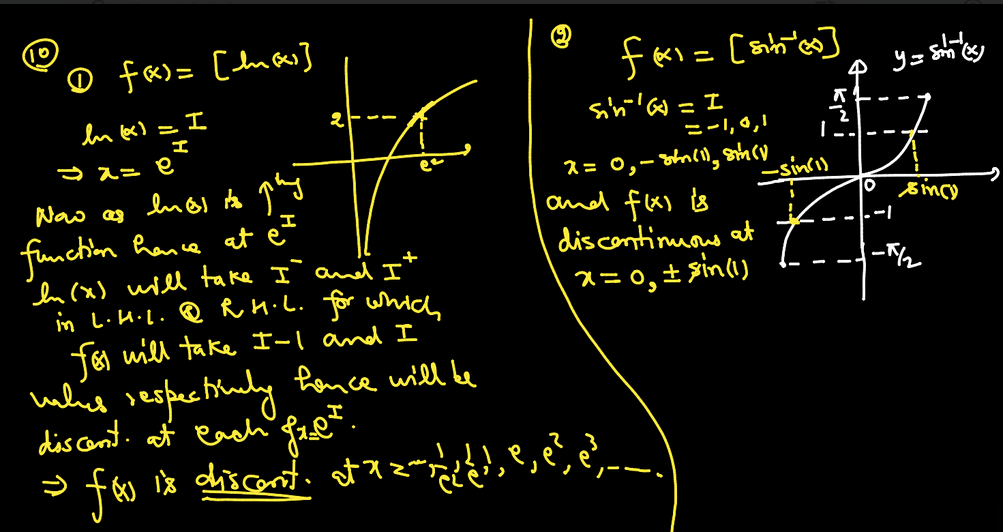 ⑩
① f(x) = [ln(x)]
ln(x) = I
⇒ x = e^I
2
e²
Now as ln(x) is ↑ing
function hence at e^I
ln(x) will take I⁻ and I⁺
in L.H.L. @ R.H.L. for which
f(x) will take I-1 and I
values respectively hence will be
discont. at each x=e^I.
⇒ f(x) is discont. at x = ---, 1/e², 1/e, 1, e, e², e³, ---.
②
f(x) = [sin⁻¹(x)]
y = sin⁻¹(x)
sin⁻¹(x) = I
= -1, 0, 1
x = 0, -sin(1), sin(1)
and f(x) is
discontinuous at
x = 0, ± sin(1)
π/2
1
-sin(1)
0
sin(1)
-1
-π/2